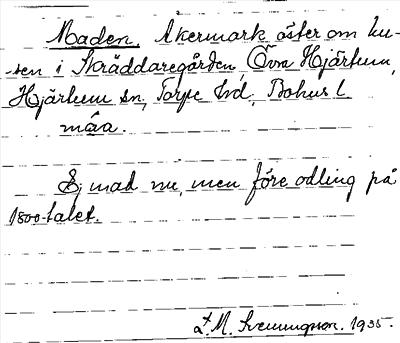 Maden. Åkermark öster om hu-
sen i Skräddaregården, Övra Hjärtum,
Hjärtum sn, Torpe hd, Bohus l.
måa.
Ej mad nu, men före odling på
1800-talet.
M. Svenungsson. 1935.